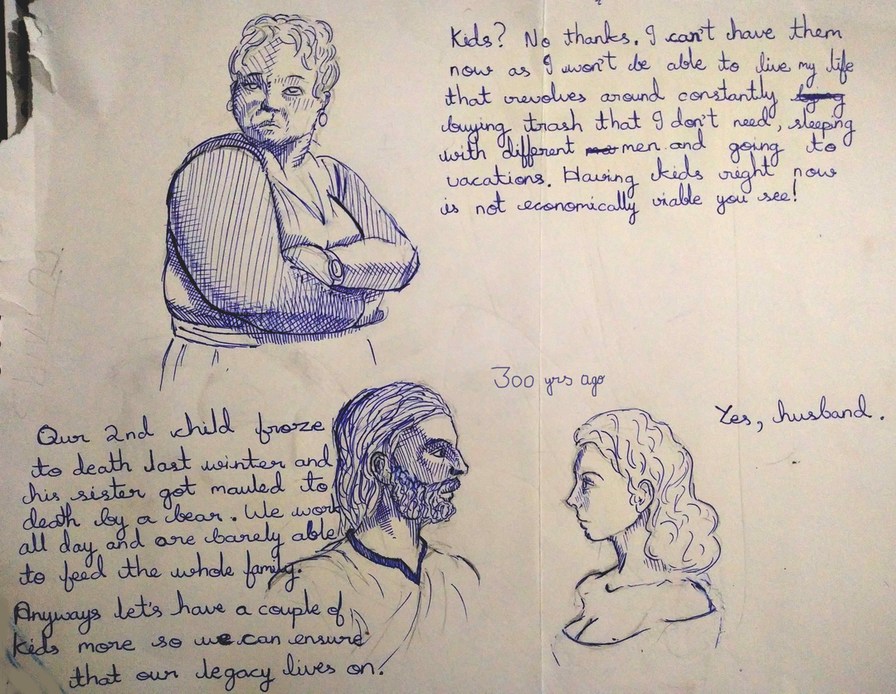 Kids? No thanks. I can't have them
now as I won't be able to live my life
that revolves around constantly
buying trash that I don't need, sleeping
with different men and going to
vacations. Having kids right now
is not economically viable you see!
300 yrs ago
Yes, husband.
Our 2nd child froze
to death last winter and
his sister got mauled to
death by a bear. We work
all day and are barely able
to feed the whole family.
Anyways let's have a couple of
kids more so we can ensure
that our legacy lives on.